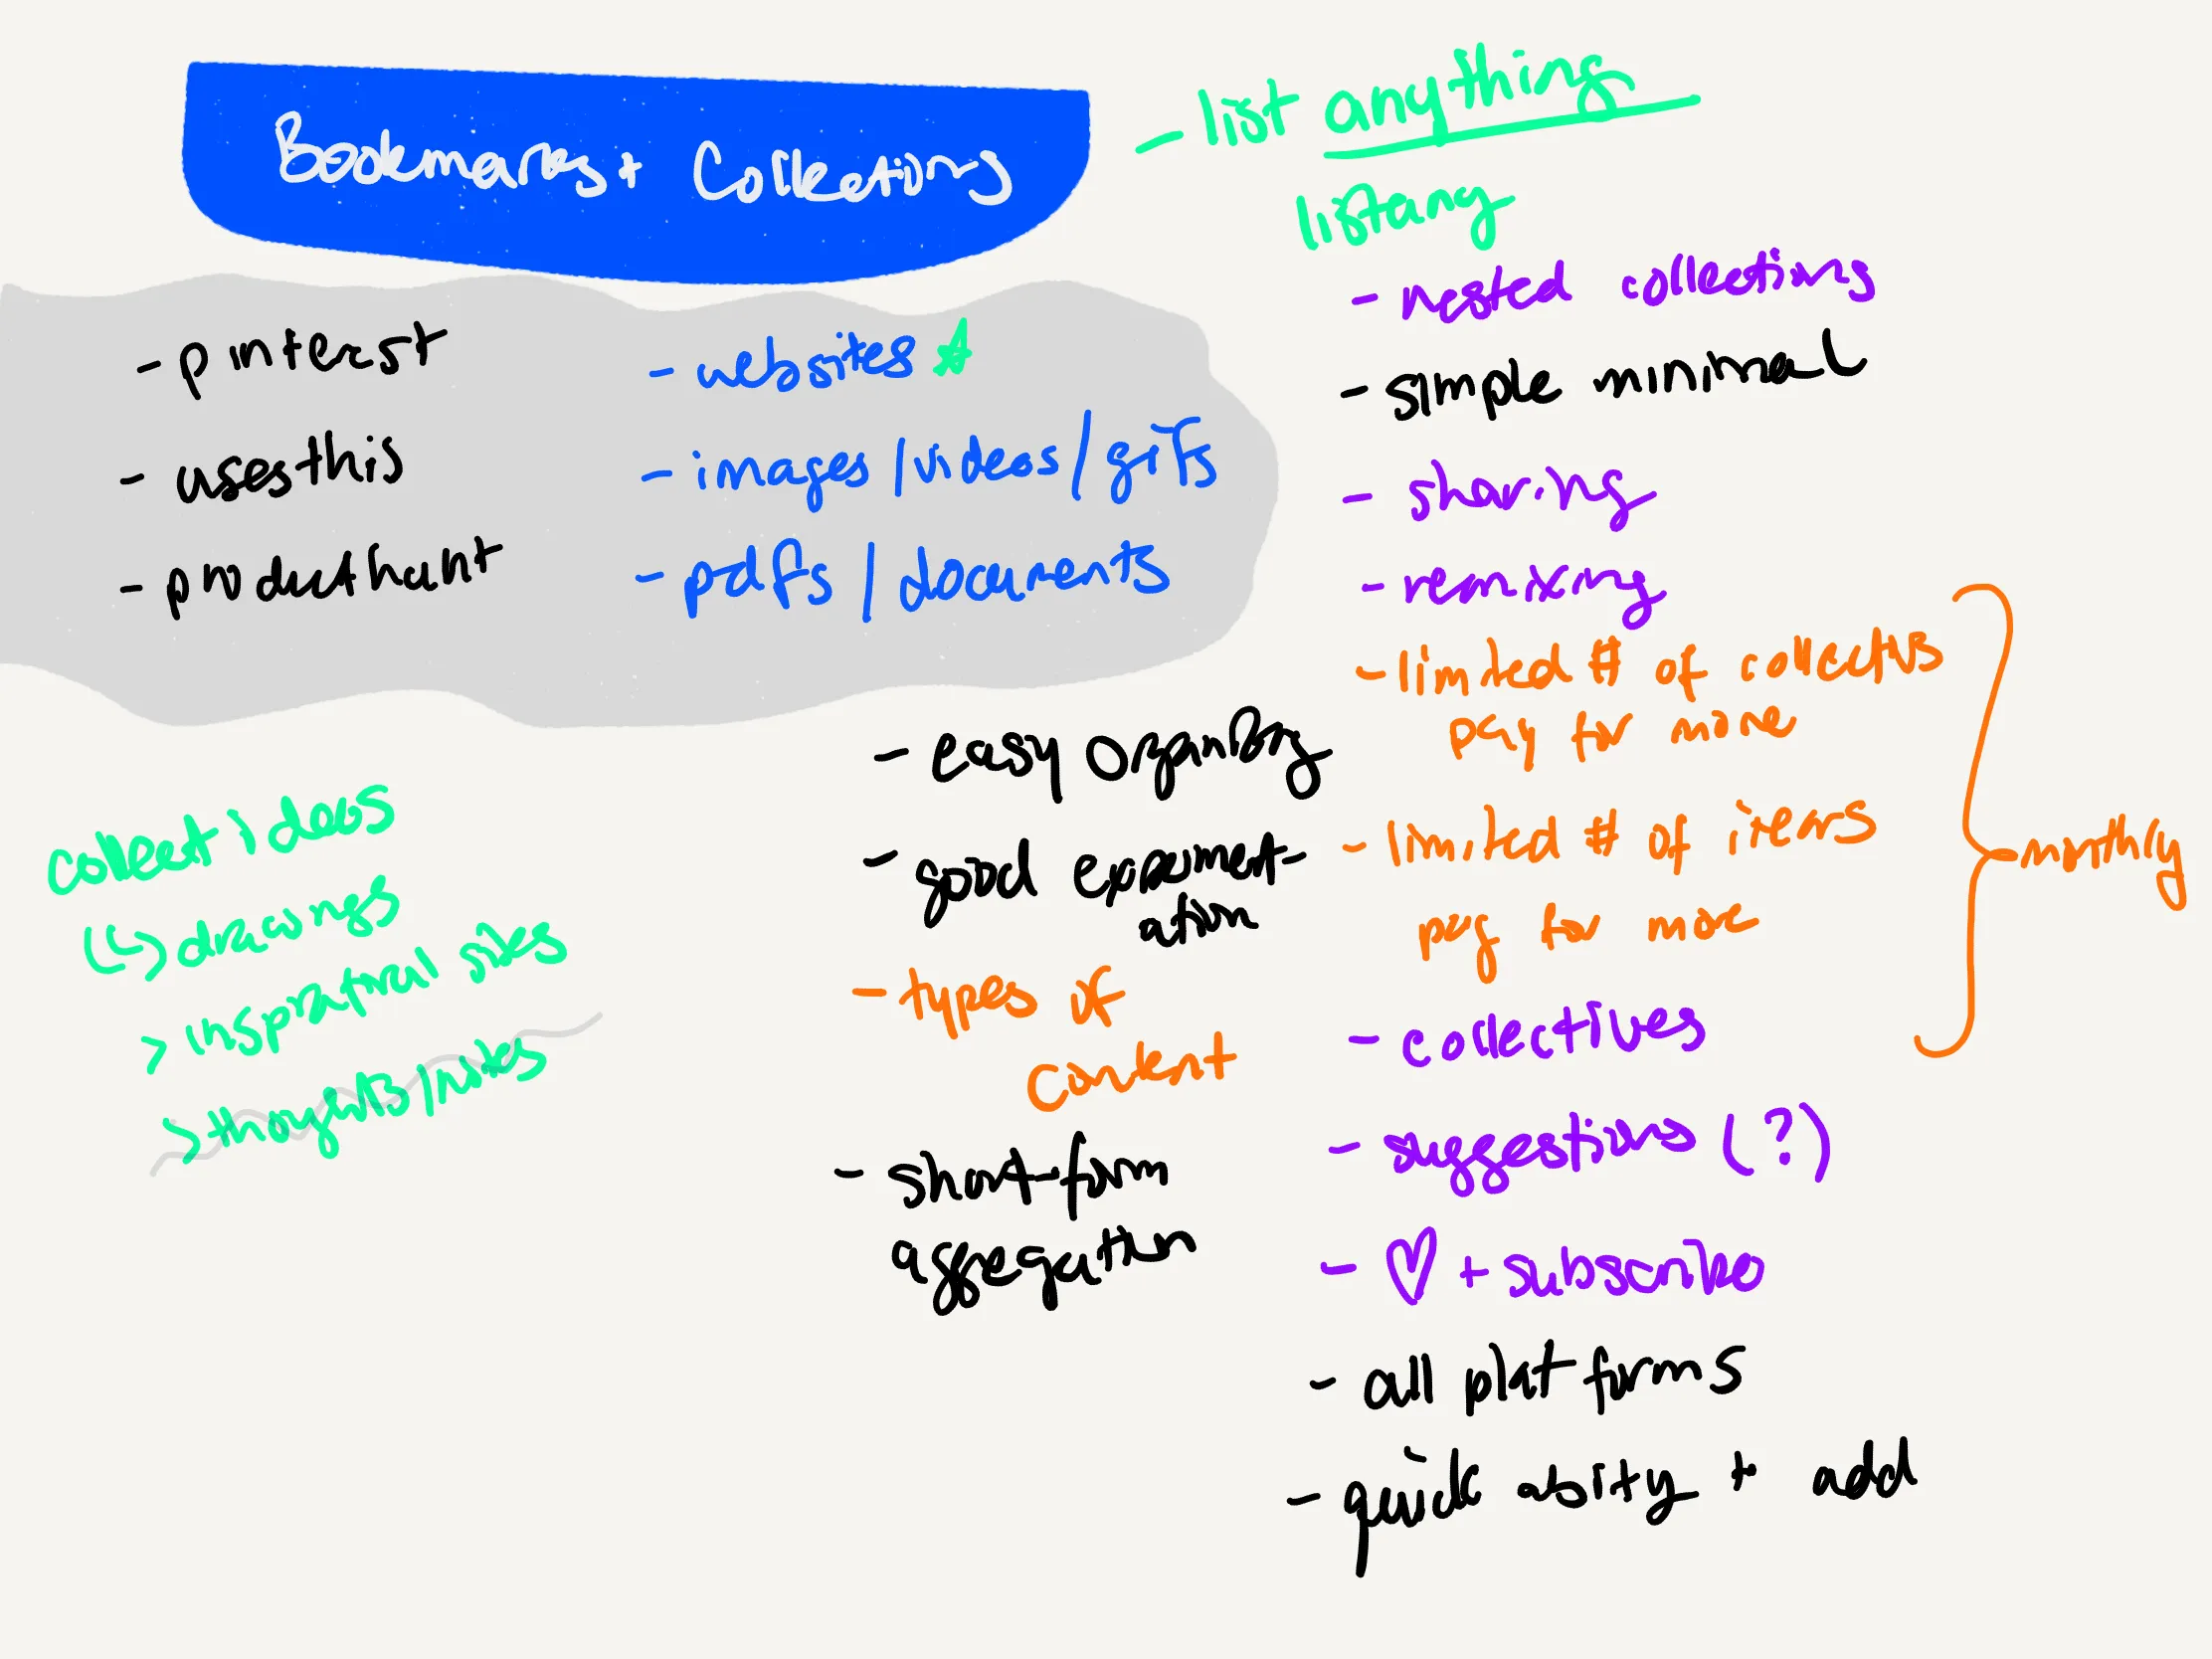 Bookmarks + Collections
- pinterest
- usesthis
- producthunt
- websites
- images / videos / gifs
- pdfs / documents
collect ideas
(↳) drawings
> inspirational sites
> thoughts/notes
- easy organizing
- good experiment-
ation
- types of
content
- short-form
aggregation
- list anything
listany
- nested collections
- simple minimal
- sharing
- remixing
- limited # of collectns
pay for more
- limited # of items
pay for more
- collectives
monthly
- suggestions (?)
- ♡ + subscribe
- all platforms
- quick ability + add